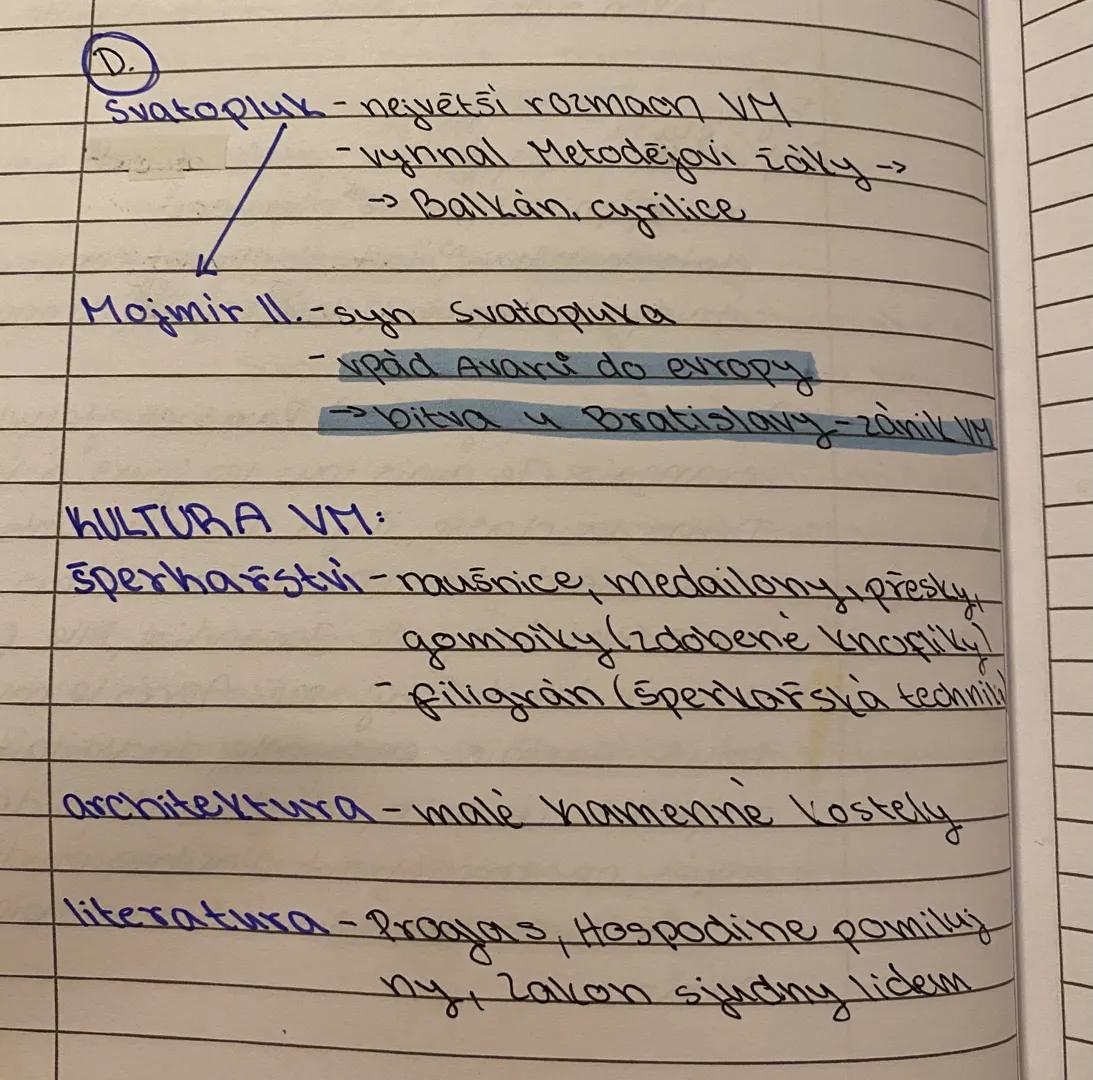 D.
Svatopluk - největší rozmach VM
- vyhnal Metodějovi žáky →
→ Balkán, cyrilice
Mojmír II. - syn Svatopluka
- vpád Avarů do evropy
→ bitva u Bratislavy - zánik VM
KULTURA VM:
šperkařství - naušnice, medailony, přesky,
gombíky (zdobené knoflíky)
- filigrán (šperkařská technika)
architektura - malé kamenné kostely
literatura - Progas, Hospodine pomiluj
ny, Zakon sjudny lidem